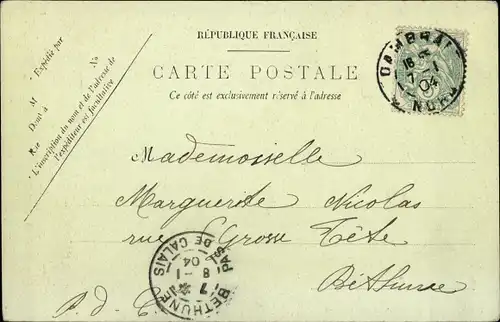 RÉPUBLIQUE FRANÇAISE
CARTE POSTALE
Ce côté est exclusivement réservé à l'adresse
Expédié par
M
N°
Demt à
Rue
L'inscription du nom et de l'adresse de
l'expéditeur est facultative
CAMBRAI
16
7 - 1
04
NORD
Mademoiselle
Marguerite Nicolas
rue Grosse Tête
Béthune
P. d. C.
BÉTHUNE
7
8 - 1
04
PAS DE CALAIS